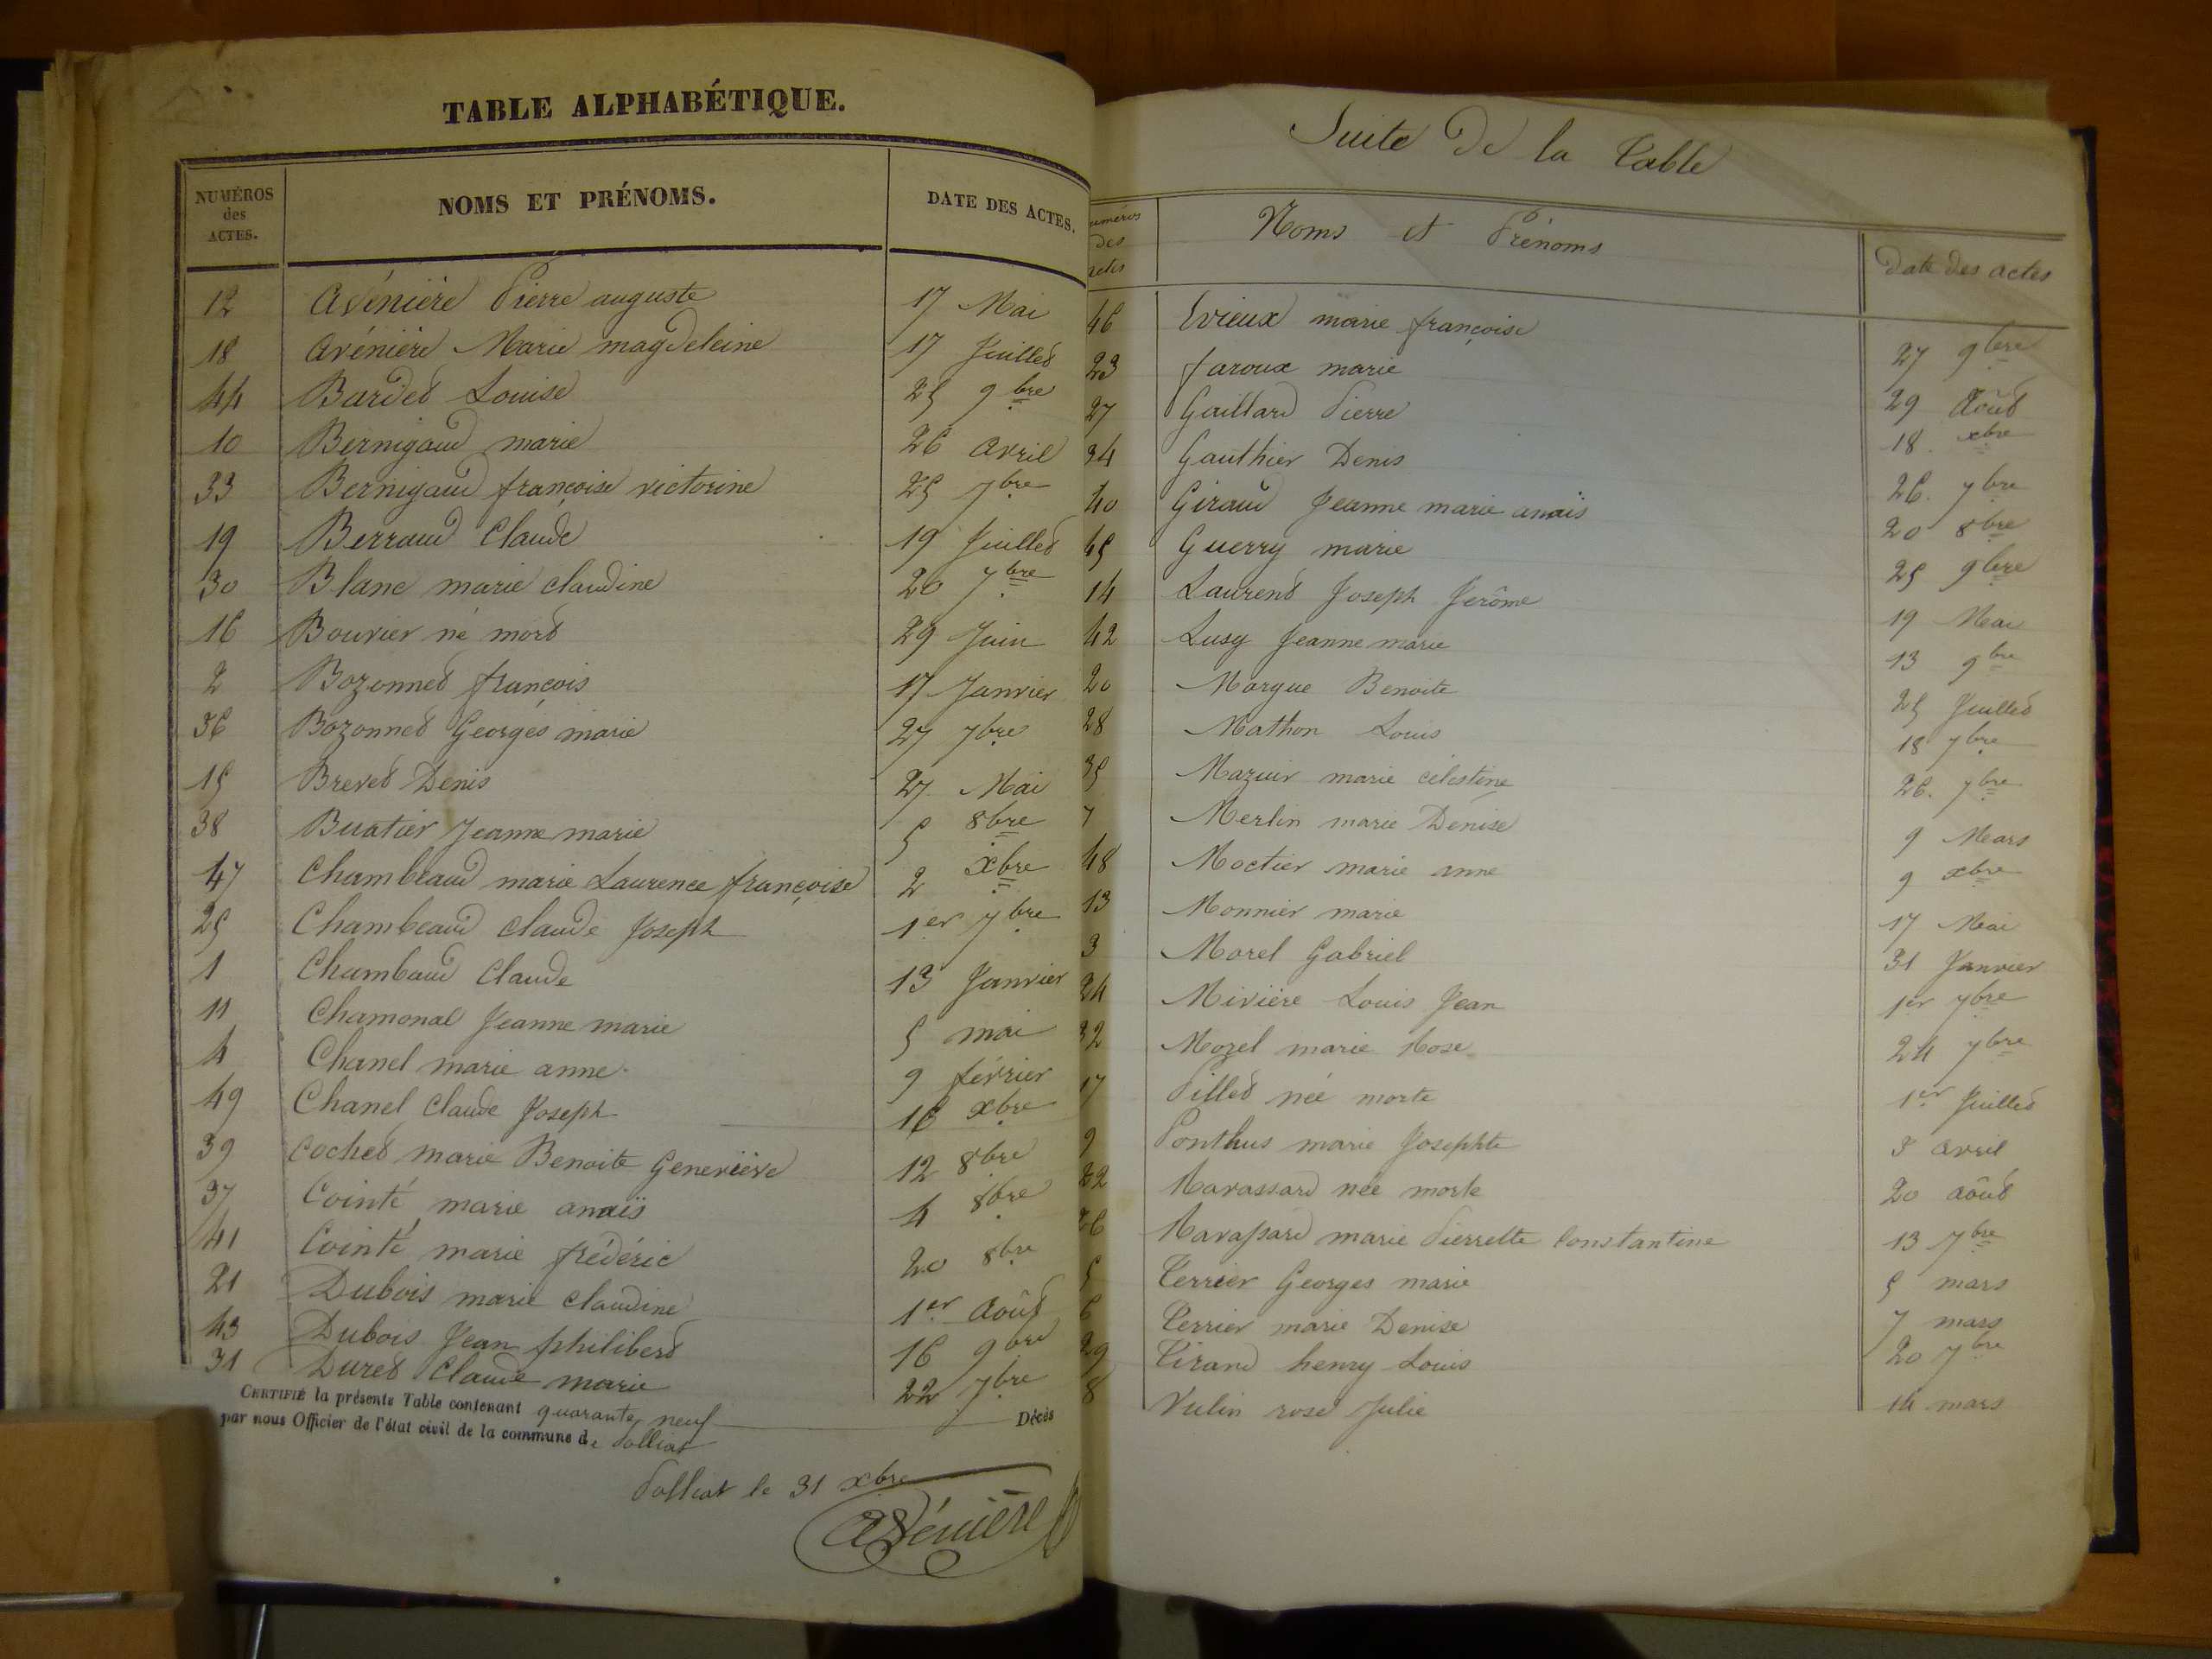 TABLE ALPHABÉTIQUE.
NUMÉROS des ACTES. NOMS ET PRÉNOMS. DATE DES ACTES.
12 Avénière Pierre auguste 17 Mai
18 Avénière Marie magdeleine 17 Juillet
44 Bardet Louise 25 9bre
10 Bernigaud marie 26 avril
33 Bernigaud françoise victorine 25 7bre
19 Berraud Claude 19 Juillet
30 Blanc marie claudine 20 7bre
16 Bouvier né mort 29 Juin
2 Bozonnet françois 17 Janvier
36 Bozonnet Georges marie 27 7bre
15 Brevet Denis 27 Mai
38 Buatier Jeanne marie 5 8bre
47 Chambeaud marie Laurence françoise 2 xbre
25 Chambeaud claude Joseph 1er 7bre
1 Chambaud Claude 13 Janvier
11 Chamonal Jeanne marie 5 mai
4 Chanel marie anne 9 février
49 Chanel Claude Joseph 16 xbre
39 Cochet marie Benoite Geneviève 12 8bre
37 Cointé marie anaïs 4 8bre
41 Cointé marie frédéric 20 8bre
21 Dubois marie claudine 1er Août
43 Dubois Jean philibert 16 9bre
31 Duret Claude marie 22 7bre
CERTIFIÉ la présente Table contenant quarante neuf Décès
par nous Officier de l'état civil de la commune de Polliat
Polliat le 31 xbre
Avénière
Suite de la Table
numéros des actes Noms et Prénoms date des actes
46 Evieux marie françoise 27 9bre
23 faroux marie 29 Août
27 Gaillard Pierre 18 xbre
34 Gauthier Denis 26 7bre
40 Giraud Jeanne marie anaïs 20 8bre
45 Guerry marie 25 9bre
14 Laurent Joseph Jerôme 19 Mai
42 Lusy Jeanne marie 13 9bre
20 Morgue Benoite 25 Juillet
28 Mathon Louis 18 7bre
35 Mazuir marie célestine 26 7bre
7 Merlin marie Denise 9 Mars
48 Moctier marie anne 9 xbre
13 Monnier marie 17 Mai
3 Morel Gabriel 31 Janvier
24 Mivière Louis Jean 1er 7bre
32 Mozel marie Rose 24 7bre
17 Pillet née morte 1er Juillet
9 Ponthus marie Josephte 3 avril
22 Ravassard née morte 20 août
26 Ravassard marie Pierrette Constantine 13 7bre
5 Terrier Georges marie 5 mars
6 Terrier marie Denise 7 mars
29 Tirand henry Louis 20 7bre
8 Vulin rose Julie 14 mars